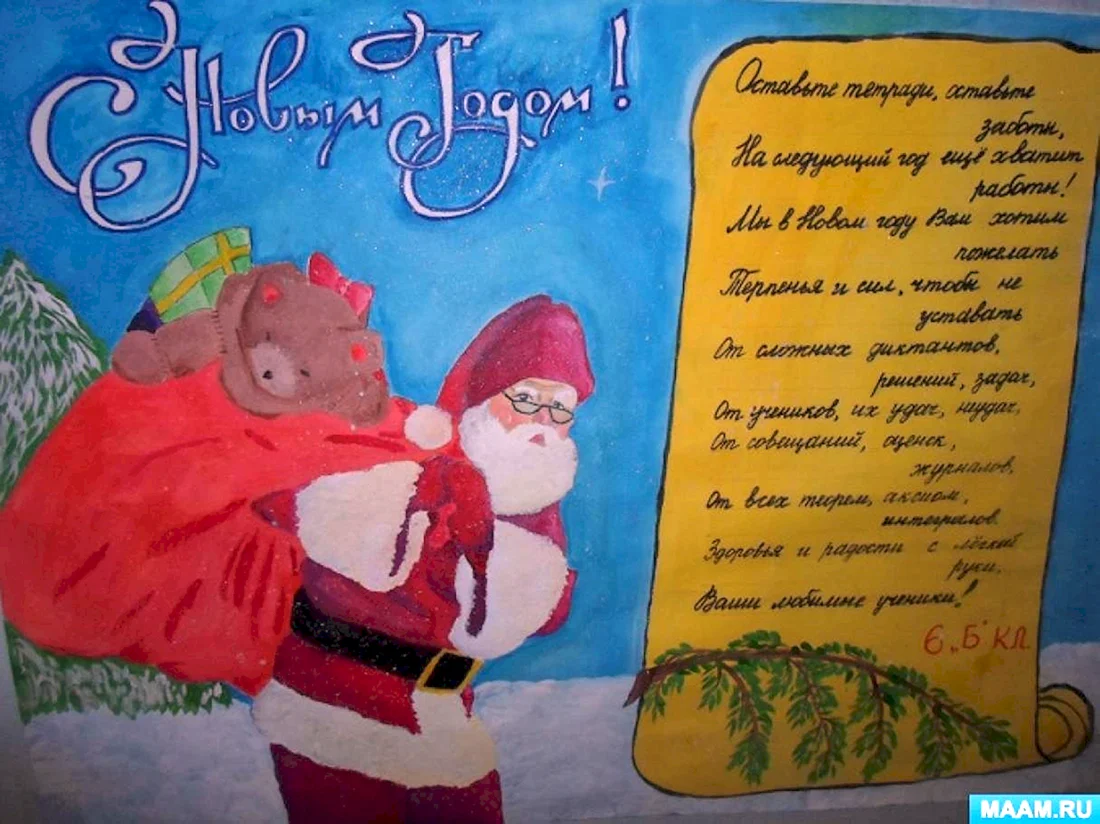 С Новым Годом!
Оставьте тетради, оставьте
заботы,
На следующий год ещё хватит
работы!
Мы в Новом году Вам хотим
пожелать
Терпенья и сил, чтобы не
уставать
От сложных диктантов,
решений, задач,
От учеников, их удач, неудач,
От совещаний, оценок,
журналов,
От всех теорем, аксиом,
интегралов.
Здоровья и радости с лёгкой
руки,
Ваши любимые ученики!
6 „Б" КЛ.
MAAM.RU